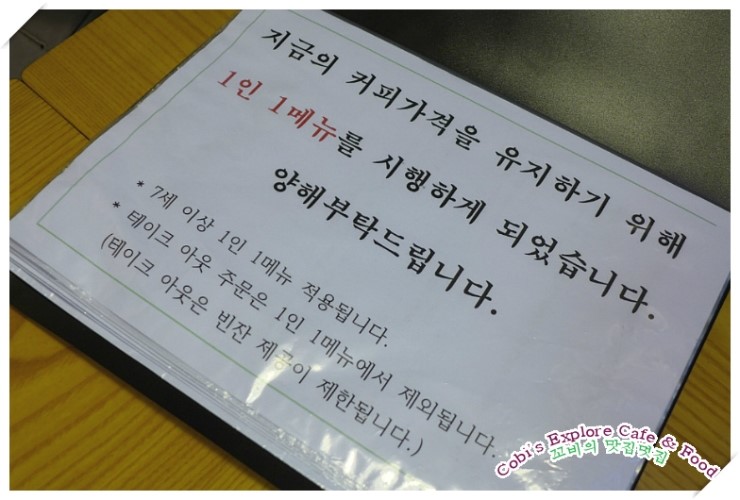 지금의 커피가격을 유지하기 위해
1인 1메뉴를 시행하게 되었습니다.
양해부탁드립니다.
* 7세 이상 1인 1메뉴 적용됩니다.
* 테이크 아웃 주문은 1인 1메뉴에서 제외됩니다.
(테이크 아웃은 빈잔 제공이 제한됩니다.)
Cobi's Explore Cafe & Food
꼬비의 맛집멋집